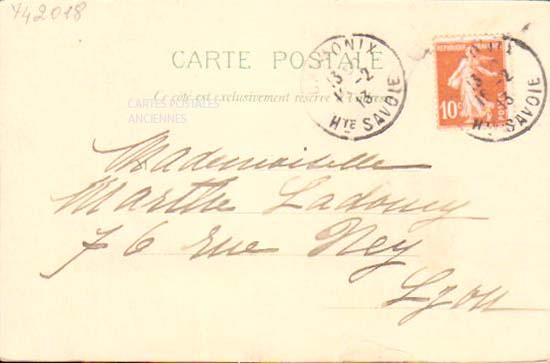 Y42018
CARTE POSTALE
Ce côté est exclusivement réservé à l'adresse
CARTES POSTALES
ANCIENNES
CHAMONIX
13
-2
13
HTE SAVOIE
REPUBLIQUE
10c
POSTES
ONIX
13
-2
13
HTE SAVOIE
Mademoiselle
Marthe Ladouy
76 rue Ney
Lyon